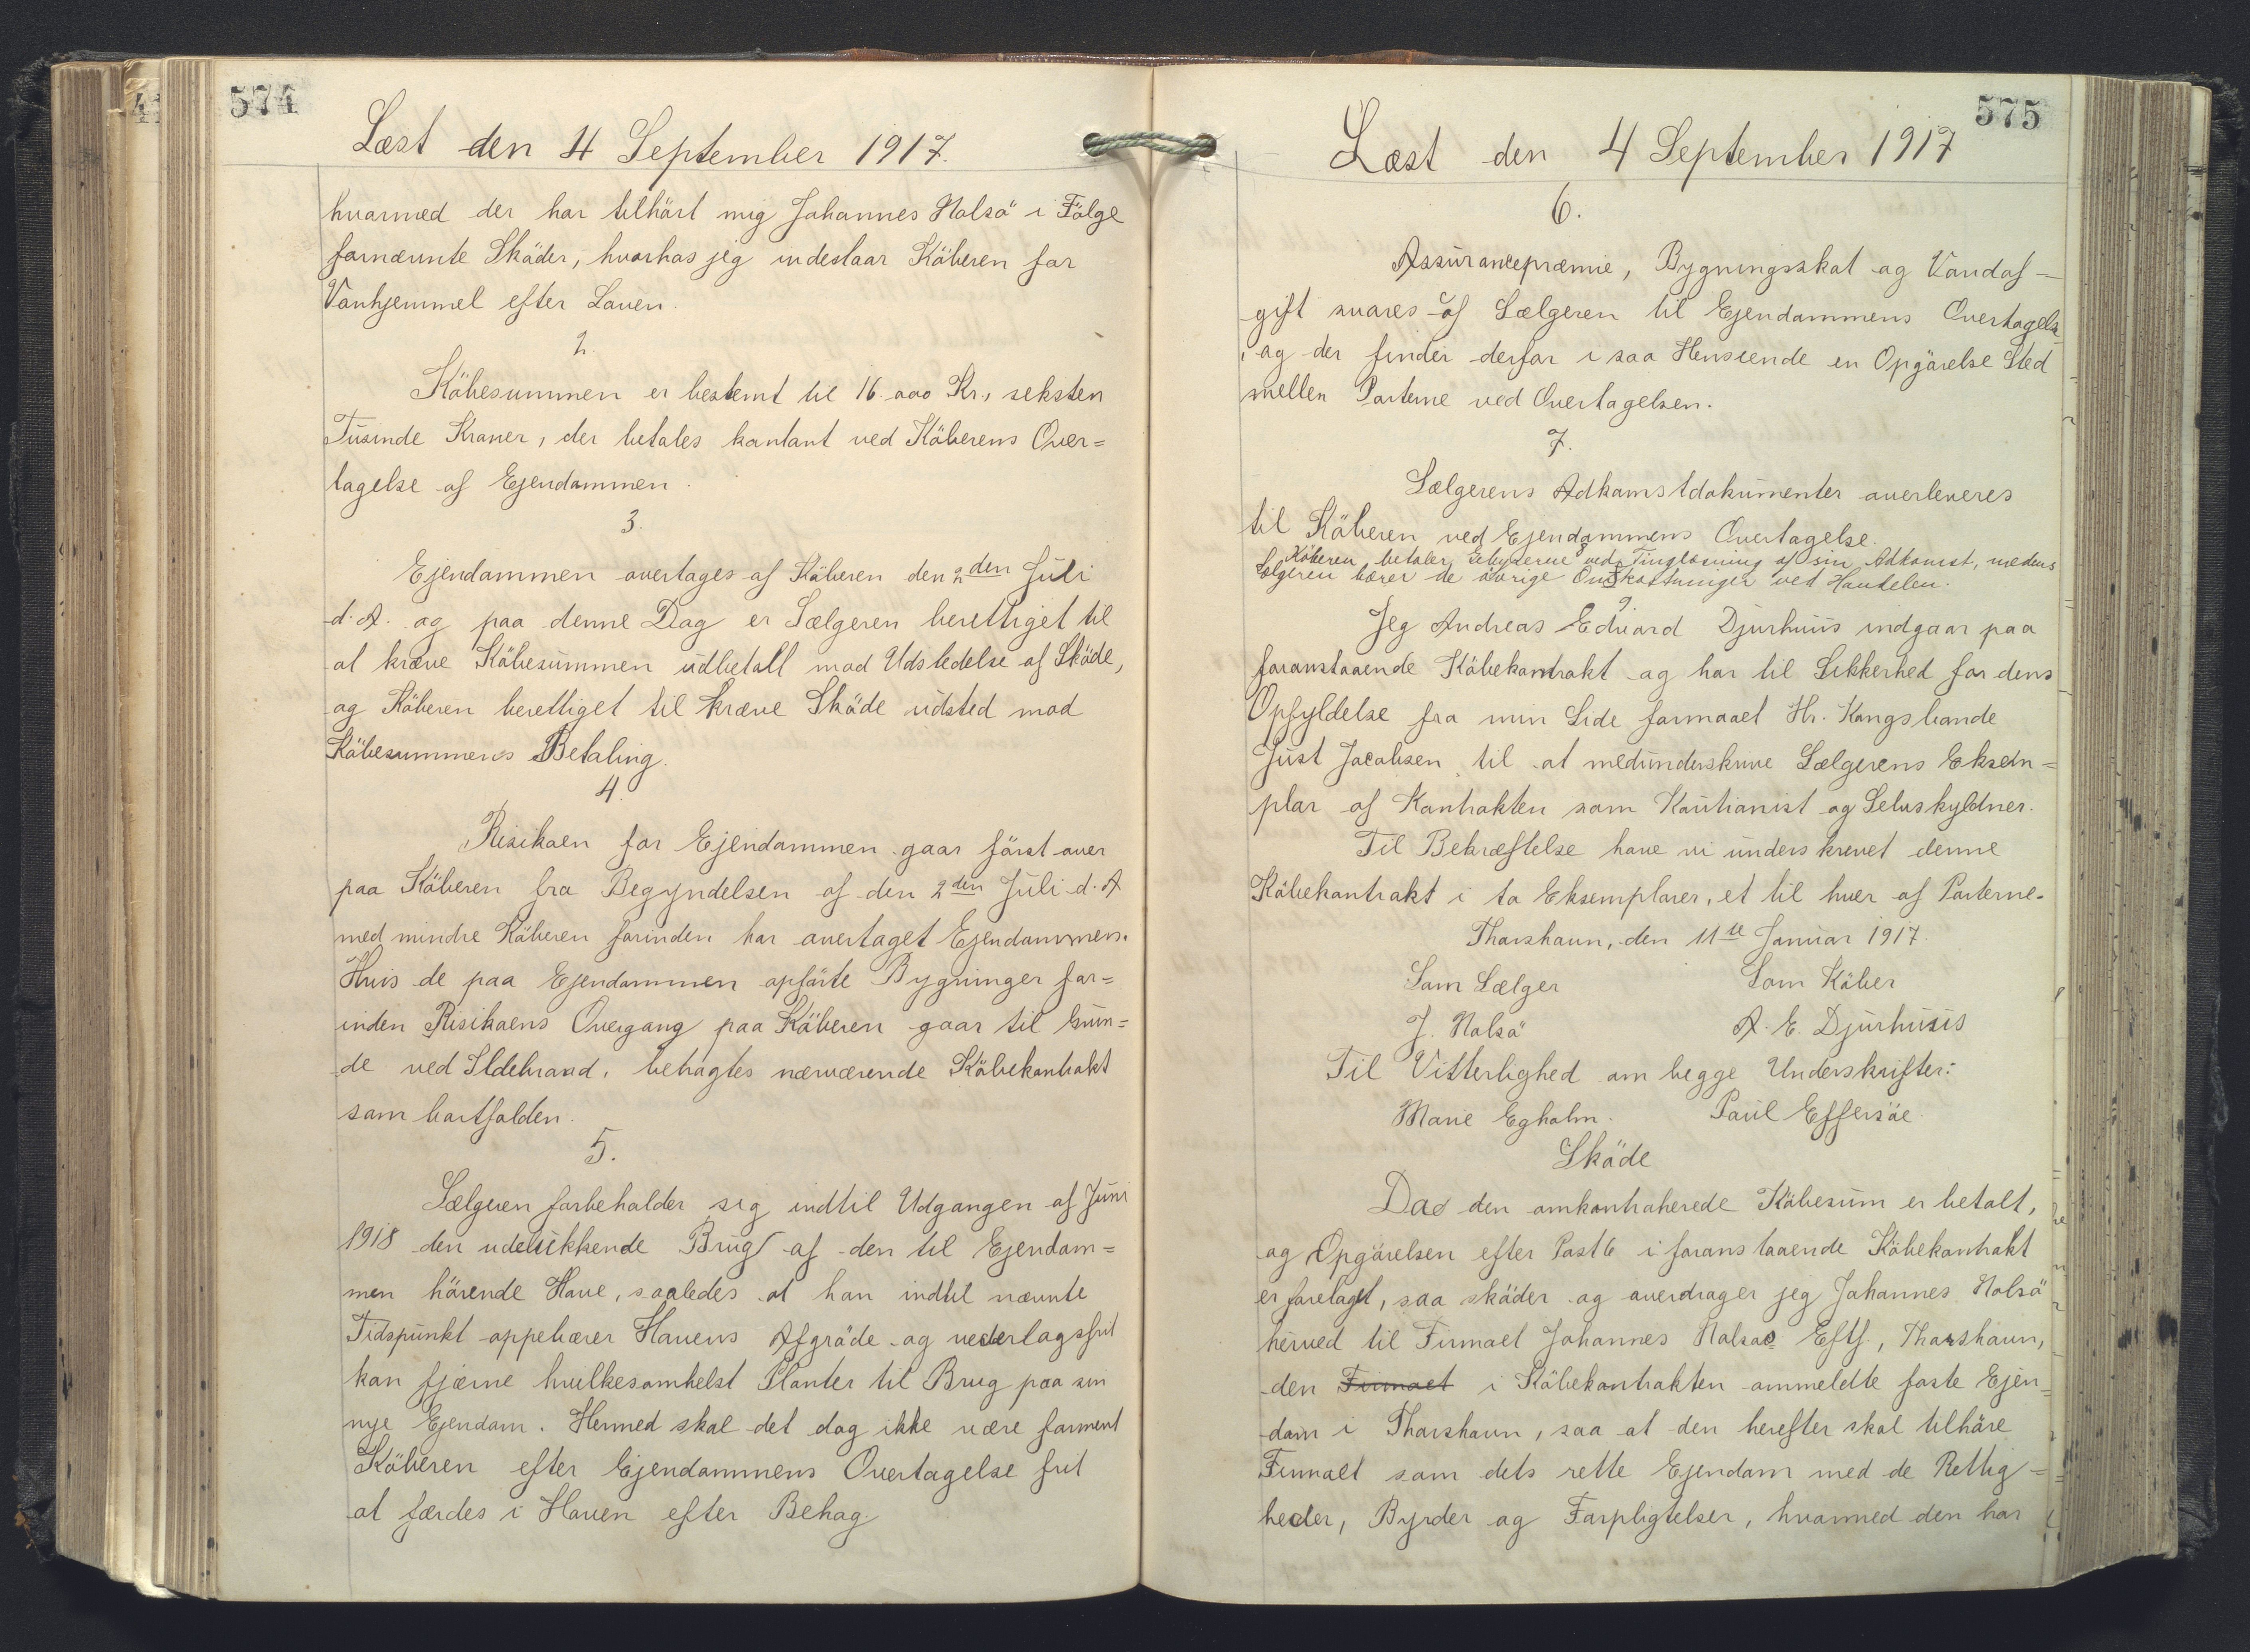 574
Læst den 4 September 1917.
hvormed der har tilhört mig Johannes Nolsö i Fölge
fornævnte Sköder, hvorhos jeg indestaar Köberen for
Vanhjemmel efter Loven.
2.
Köbesummen er bestemt til 16.000 Kr., seksten
Tusinde Kroner, der betales kontant ved Köberens Over=
tagelse af Ejendommen.
3.
Ejendommen overtages af Köberen den 2den Juli
d. A. og paa denne Dag er Sælgeren berettiget til
at kræve Köbesummen udbetalt mod Udstedelse af Sköde,
og Köberen berettiget til kræve Sköde udsted mod
Köbesummens Betaling.
4.
Risikoen for Ejendommen gaar först over
paa Köberen fra Begyndelsen af den 2den Juli d. A
med mindre Köberen forinden har overtaget Ejendommen.
Hvis de paa Ejendommen opförte Bygninger for=
inden Risikoens Overgang paa Köberen gaar til Grun=
de ved Ildebrand, betragtes nærværende Köbekontrakt
som bortfalden.
5.
Sælgeren forbeholder sig indtil Udgangen af Juni
1918 den udelukkende Brug af den til Ejendom=
men hörende Have, saaledes at han indtil nævnte
Tidspunkt oppebærer Havens Afgröde og vederlagsfrit
kan fjærne hvilkesomhelst Planter til Brug paa sin
nye Ejendom. Hermed skal det dog ikke være forment
Köberen efter Ejendommens Overtagelse frit
at færdes i Haven efter Behag.
575
Læst den 4 September 1917
6.
Assurancepræmie, Bygningsskat og Vandaf=
gift svares af Sælgeren til Ejendommens Overtagelse
, og der finder derfor i saa Henseende en Opgörelse Sted
mellem Parterne ved Overtagelsen.
7.
Sælgerens Adkomstdokumenter overleveres
til Köberen ved Ejendommens Overtagelse.
8
Köberen betaler Gebyrerne ved Tinglæsning af sin Adkomst, medens
Sælgeren bærer de övrige Omkostninger ved Handelen.
9
Jeg Andreas Edvard Djurhuus indgaar paa
foranstaaende Köbekontrakt og har til Sikkerhed for dens
Opfyldelse fra min Side formaaet Hr. Kongsbonde
Just Jacobsen til at medunderskrive Sælgerens Eksem=
plar af Kontrakten som Kautionist og Selvskyldner.
Til Bekræftelse have vi underskrevet denne
Köbekontrakt i to Eksemplarer, et til hver af Parterne.
Thorshavn, den 11te Januar 1917.
Som Sælger Som Köber
J. Nolsö A. E. Djurhuus
Til Vitterlighed om begge Underskrifter:
Marie Egholm. Poul Effersöe.
Sköde
Da den omkontraherede Köbesum er betalt,
og Opgörelsen efter Post 6 i foranstaaende Köbekontrakt
er foretaget, saa sköder og overdrager jeg Johannes Nolsö
herved til Firmaet Johannes Nolsøe Eftf., Thorshavn,
den Firmaet i Köbekontrakten ommeldte faste Ejen=
dom i Thorshavn, saa at den herefter skal tilhöre
Firmaet som dets rette Ejendom med de Rettig=
heder, Byrder og Forpligtelser, hvormed den har